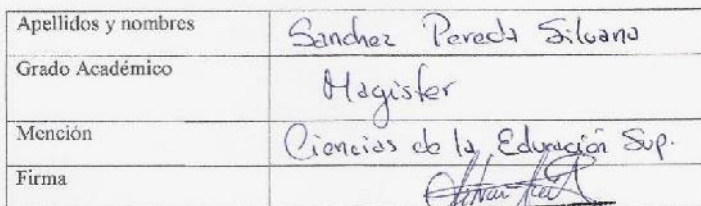 Apellidos y nombres Sanchez Pereda Silvana
Grado Académico Magister
Mención Ciencias de la Educación Sup.
Firma